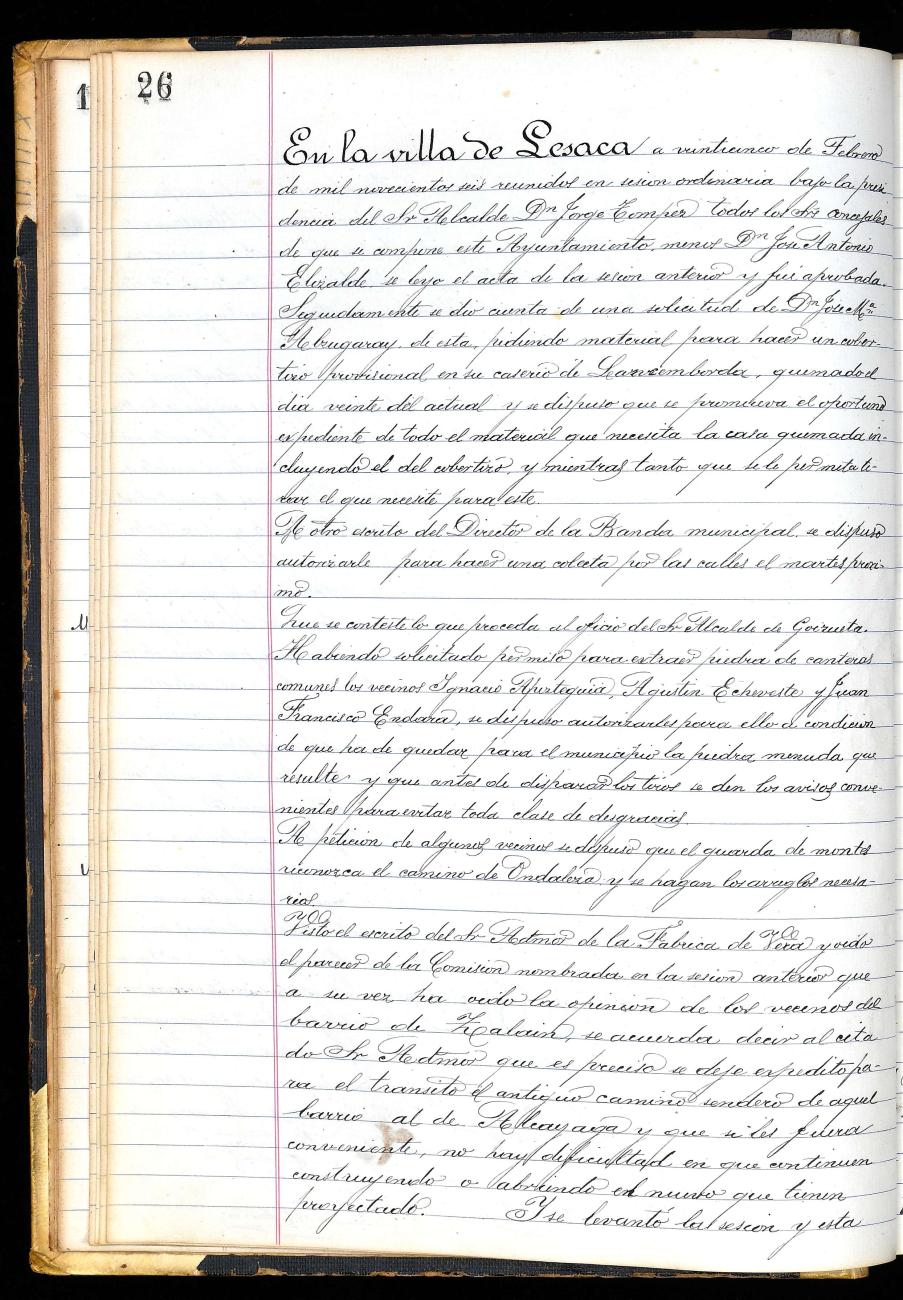 26
1
En la villa de Lesaca a veinticinco de Febrero
de mil novecientos seis reunidos en sesion ordinaria bajo la presi
dencia del Sr Alcalde Dn Jorge Tomper todos los Srs concejales
de que se compone este Ayuntamiento, menos Dn Jose Antonio
Elizalde se leyo el acta de la sesion anterior y fué aprobada.
Seguidamente se dio cuenta de una solicitud de Dn Jose Ma
Abrugaray, de esta, pidiendo material para hacer un cober-
tizo provisional en su caserio de , quemado el
dia veinte del actual y se dispuso que se promueva el oportuno
expediente de todo el material que necesita la casa quemada in-
cluyendo el del cobertizo, y mientras tanto que se le permita ti-
rar el que necesite para este
A otro escrito del Director de la Banda municipal, se dispuso
autorizarle para hacer una colecta por las calles el martes proxi-
mo.
Que se conteste lo que proceda al oficio del Sr Alcalde de Goizueta.
Habiendo solicitado permiso para extraer piedra de canteras
comunes los vecinos Ignacio Apezteguia, Agustin Echeveste y Juan
Francisco Endara, se dispuso autorizarles para ello a condicion
de que ha de quedar para el municipio la piedra menuda que
resulte y que antes de disparar los tiros se den los avisos conve-
nientes para evitar toda clase de desgracias.
A peticion de algunos vecinos se dispuso que el guarda de montes
reconozca el camino de Ondalera y se hagan los arreglos necesa-
rios.
Visto el escrito del Sr Admor de la Fabrica de Vera y oido
el parecer de la Comision nombrada en la sesion anterior que
a su vez ha oido la opinion de los vecinos del
barrio de Zalain, se acuerda decir al cita
do Sr Admor que es preciso se deje expedito pa-
ra el transito el antiguo camino sendero de aquel
barrio al de Alcayaga y que si les fuera
conveniente, no hay dificultad en que continuen
construyendo o abriendo el nuevo que tienen
proyectado. Y se levantó la sesion y esta